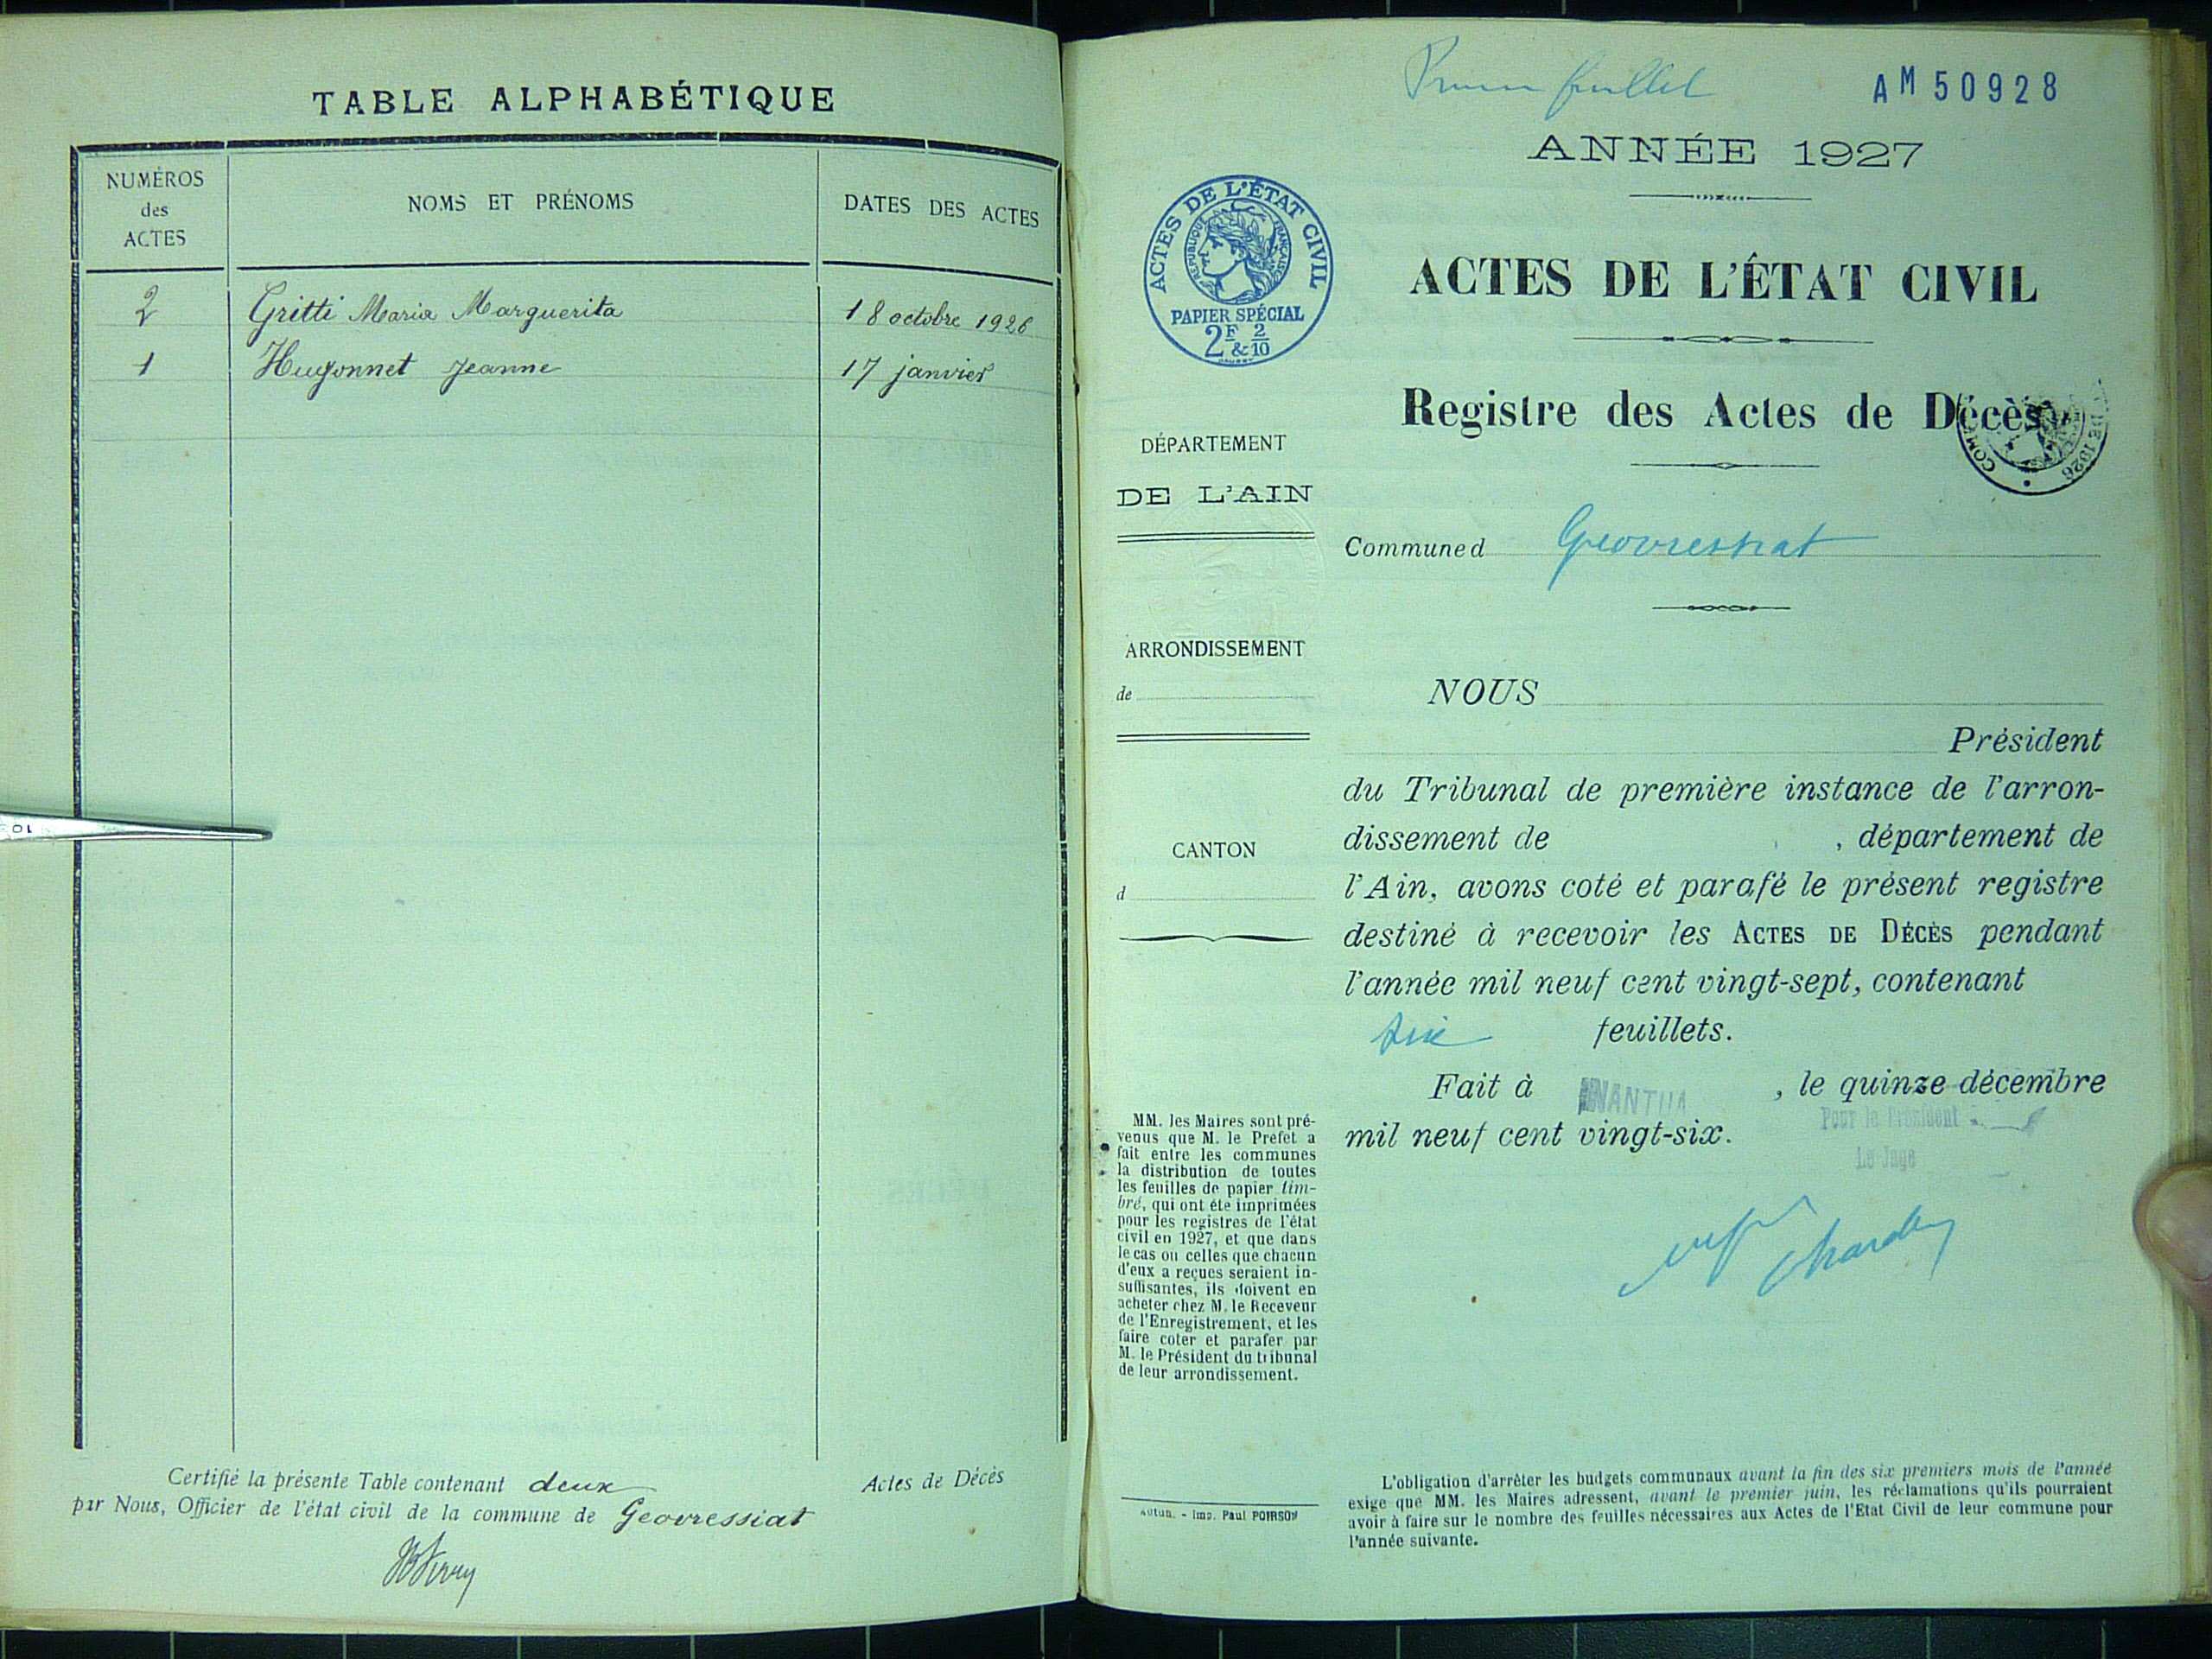 TABLE ALPHABÉTIQUE
NUMÉROS
des
ACTES
NOMS ET PRÉNOMS
DATES DES ACTES
2 Gritti Maria Marguerita 18 octobre 1926
1 Hugonnet Jeanne 17 janvier
Certifié la présente Table contenant deux Actes de Décès
par Nous, Officier de l'état civil de la commune de Geovressiat
10
feuillet
AM 50928
ANNÉE 1927
ACTES DE L'ÉTAT CIVIL
RÉPUBLIQUE FRANÇAISE
PAPIER SPÉCIAL
2F & 2/10
ACTES DE L'ÉTAT CIVIL
Registre des Actes de Décès
DE 1926
DÉPARTEMENT
DE L'AIN
Commune d Geovressiat
ARRONDISSEMENT
de
CANTON
d
NOUS
Président
du Tribunal de première instance de l'arron-
dissement de , département de
l'Ain, avons coté et parafé le présent registre
destiné à recevoir les ACTES DE DÉCÈS pendant
l'année mil neuf cent vingt-sept, contenant
six feuillets.
Fait à NANTUA, le quinze décembre
mil neuf cent vingt-six.
Pour le Président
Le Juge
MM. les Maires sont pré-
venus que M. le Préfet a
fait entre les communes
la distribution de toutes
les feuilles de papier tim-
bré, qui ont été imprimées
pour les registres de l'état
civil en 1927, et que dans
le cas ou celles que chacun
d'eux a reçues seraient in-
suffisantes, ils doivent en
acheter chez M. le Receveur
de l'Enregistrement, et les
faire coter et parafer par
M. le Président du tribunal
de leur arrondissement.
Autun. - Imp. Paul POIRSON
L'obligation d'arrêter les budgets communaux avant la fin des six premiers mois de l'année
exige que MM. les Maires adressent, avant le premier juin, les réclamations qu'ils pourraient
avoir à faire sur le nombre des feuilles nécessaires aux Actes de l'Etat Civil de leur commune pour
l'année suivante.